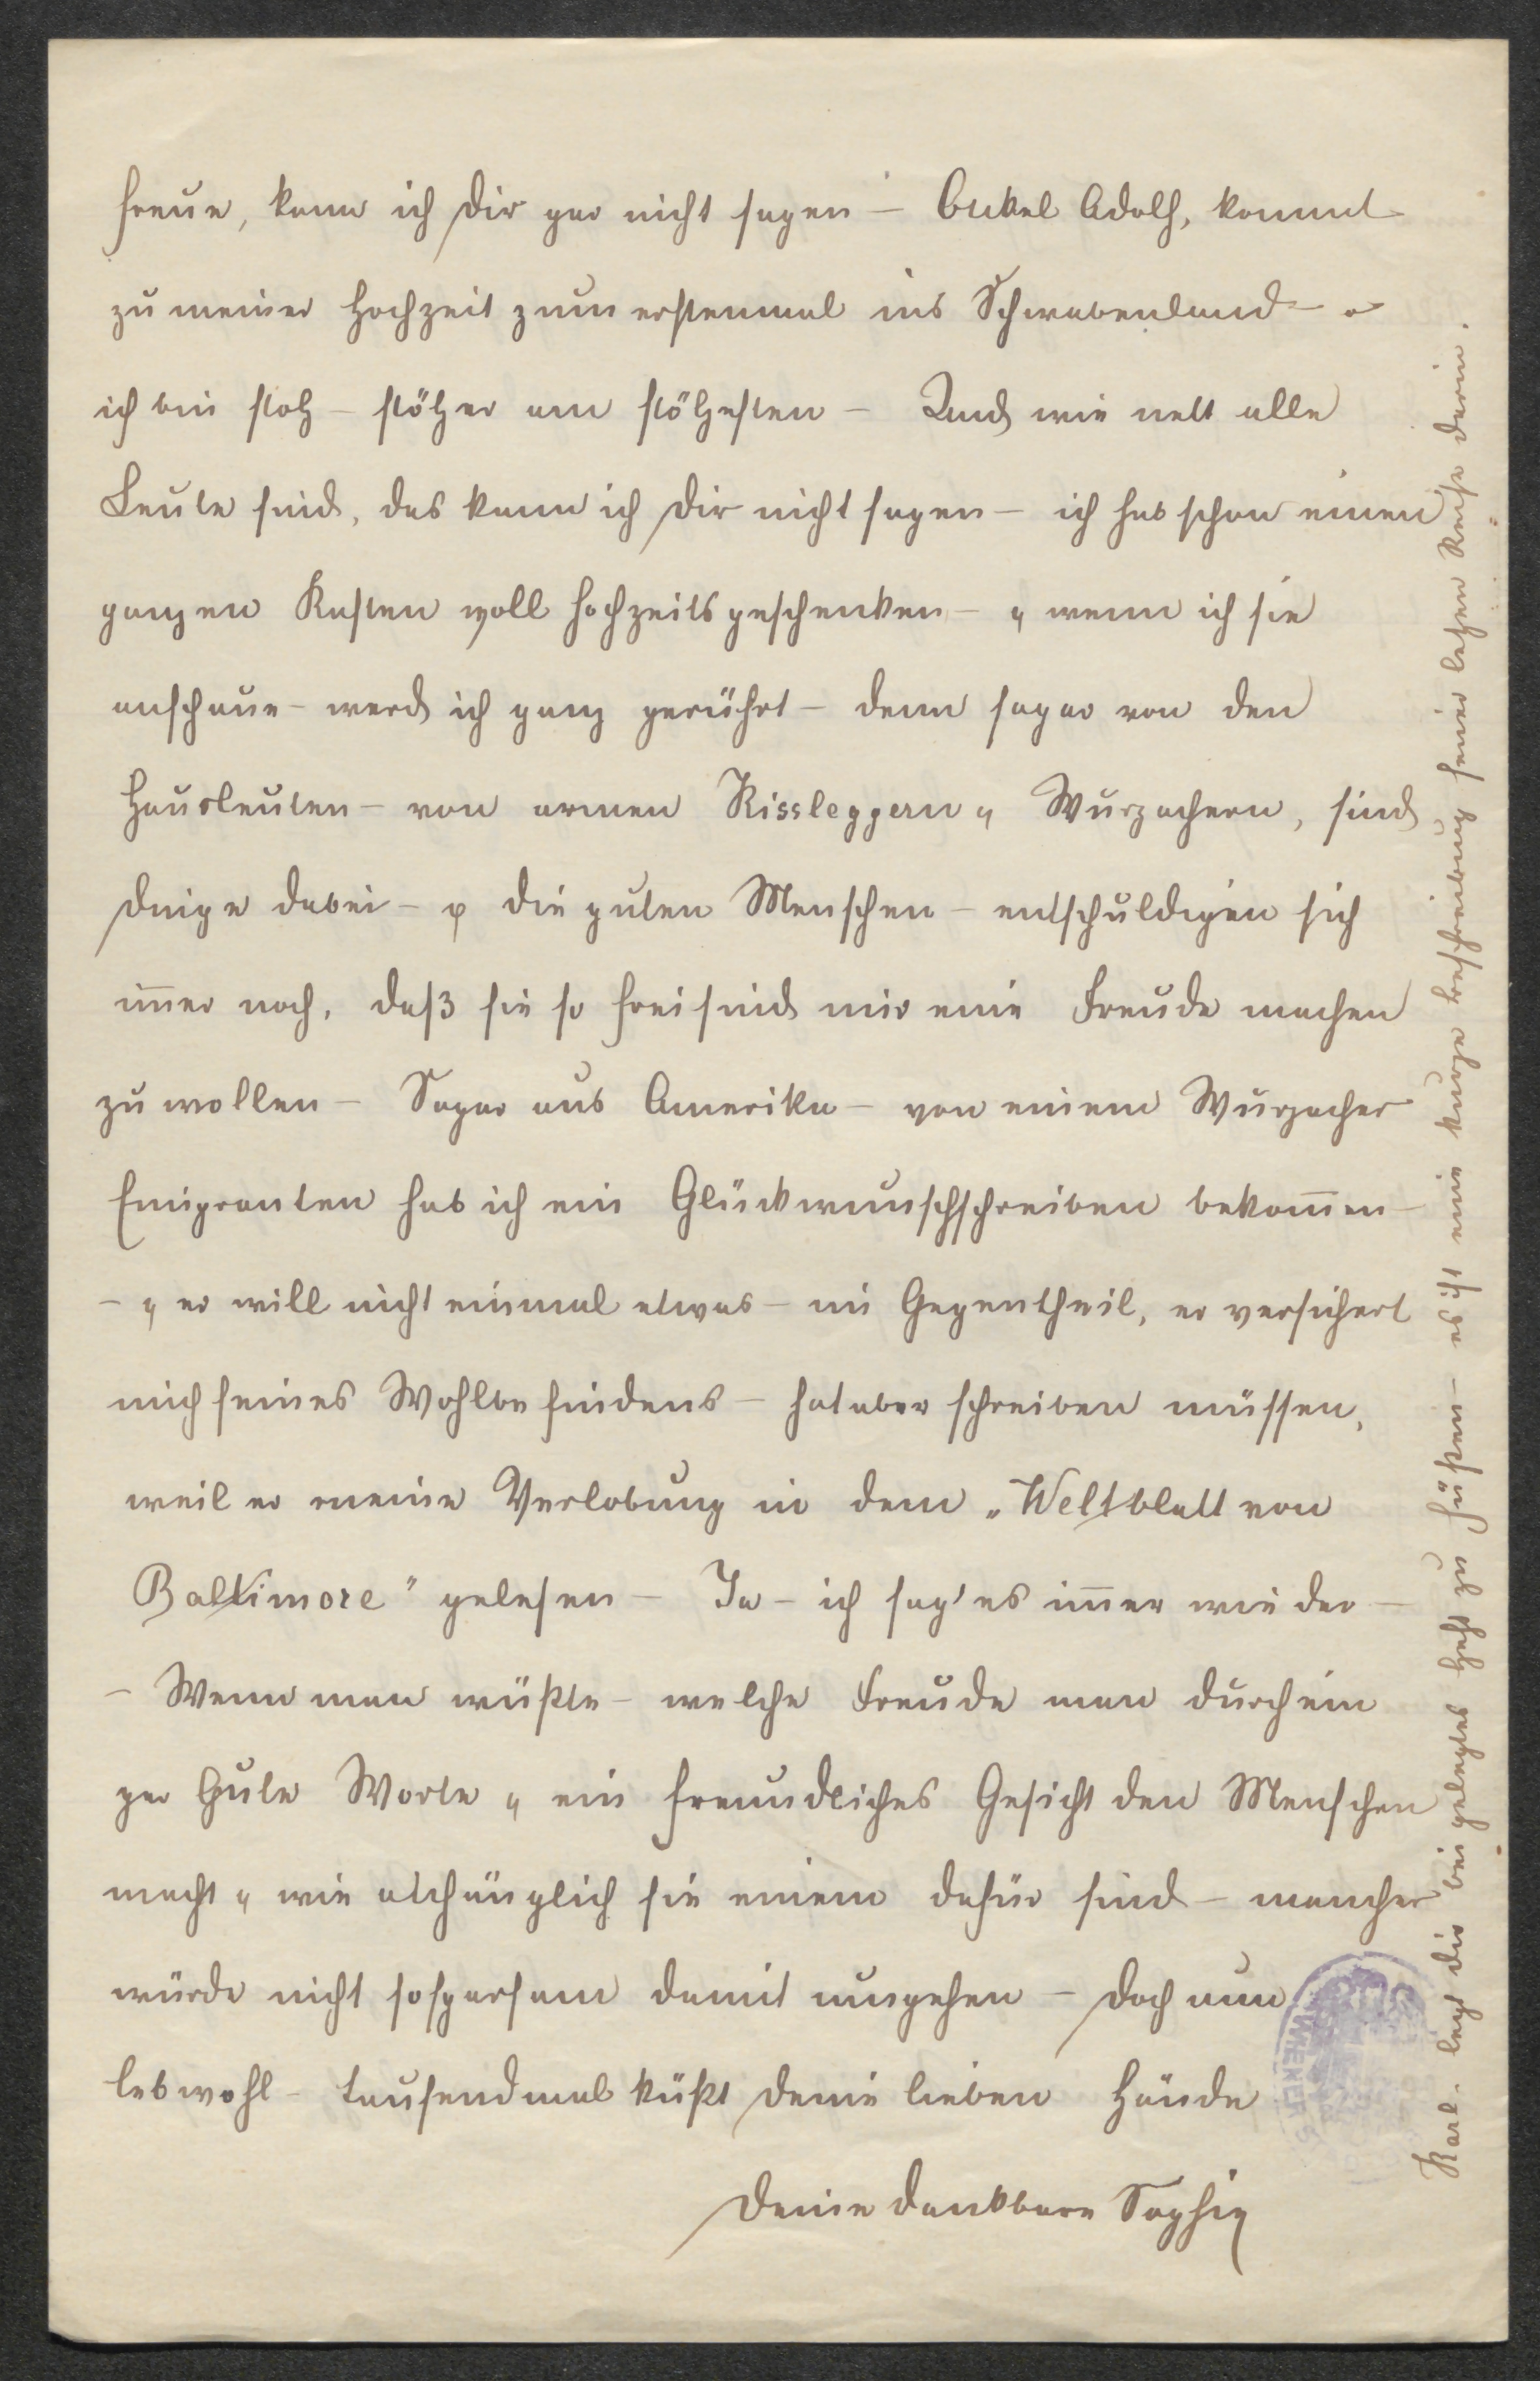 freue, kann ich Dir gar nicht sagen – Onkel Adolf, kommt
zu meiner Hochzeit zum erstenmal ins Schwabenland – o
ich bin stolz – stölzer am stölzesten – Und wie nett alle
Leute sind, das kann ich Dir nicht sagen – ich hab schon einen
ganzen Kasten voll Hochzeitsgeschenken – u wenn ich sie
anschaue – werd ich ganz gerührt – denn sogar von den
Hausleuten – von armen Kissleggern u Wurzachern, sind
Dinge dabei – u die guten Menschen – entschuldigen sich
im̄er noch, daß sie so frei sind mir eine Freude machen
zu wollen – Sogar aus Amerika – von einem Wurzacher
Emigranten hab ich ein Glückwunschschreiben bekom̄en –
– u er will nicht einmal etwas – im Gegentheil, er versichert
mich seines Wohlbefindens – hat aber schreiben müssen,
weil er meine Verlobung in dem „Weltblatt von
Baltimore" gelesen – Ja – ich sag' es im̄er wieder –
– Wenn man wüßte – welche Freude man durch ein
par Gute Worte u ein freundliches Gesicht den Menschen
macht u wie anhänglich sie einem dafür sind – mancher
würde nicht so sparsam damit umgehen – Doch nun
lebwohl – tausendmal küßt Deine lieben Hände
Deine dankbare Sophie
Karl. legt dir bei gelegtes Heft zu Füßen – es ist eine kurze Beschreibung seiner letzen Reise darin.